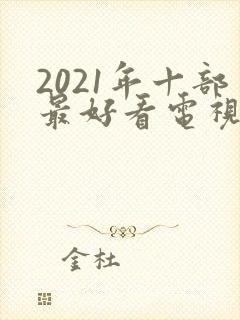 2021年十部
最好看電視
金杜